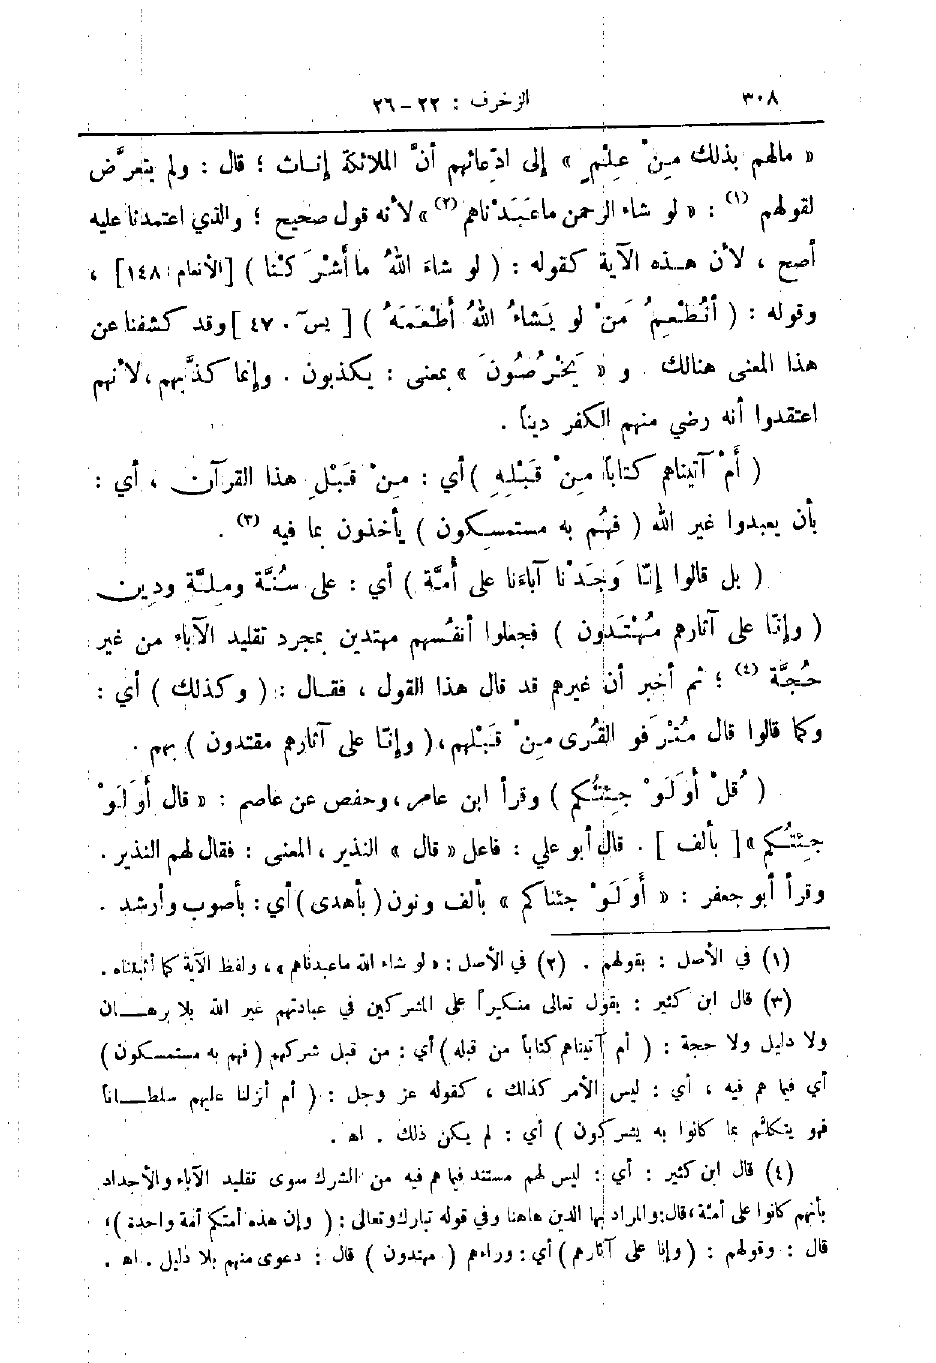 ٣٠٨ الزخرف : ٢٢ – ٢٦
« مالهم بذلك مِنْ عِلْمٍ » إلى ادّعائهم أنَّ الملائكة إنــاث ؛ قال : ولم يتعرَّض
لقولهم (١) : « لو شاء الرحمن ماعَبَدْناهم (٢) » لأنه قول صحيح ؛ والذي اعتمدنا عليه
أصح ، لأن هــذه الآية كقوله : ( لو شاءَ اللهُ ما أَشْرَكْنا ) [الأنعام : ١٤٨] ،
وقوله : ( أنُطْعِمُ مَنْ لو يَشاءُ اللهُ أطْعَمَهُ ) [ يسۤ ٤٧٠ ] وقد كشفنا عن
هذا المعنى هنالك . و « يَخْرُصُونَ » بمعنى : يكذبون . وإنما كذَّبهم ، لأنهم
اعتقدوا أنه رضي منهم الكفر ديناً .
( أَمْ آتيناهم كتاباً مِنْ قَبْلِهِ ) أي : مِنْ قَبْلِ هذا القرآن ، أي :
بأن يعبدوا غير الله ( فهُم به مستمسِكون ) يأخذون بما فيه (٣) .
( بل قالوا إنّا وَجَدْنا آباءَنا على أُمَّة ) أي : على سُنَّة ومِلَّة ودِين
( وإنّا على آثارهم مُهْتَدون ) فجعلوا أنفُسهم مهتدين بمجرد تقليد الآباء من غير
حُجَّة (٤) ؛ ثم أخبر أن غيرهم قد قال هذا القول ، فقــال : ( وكذلك ) أي :
وكما قالوا قال مُتْرَفو القُرى مِنْ قَبْلهم ، ( وإنّا على آثارهم مقتدون ) بهم .
( قُلْ أوَلَوْ جِئتُكم ) وقرأ ابن عامر ، وحفص عن عاصم : « قال أَوَلَوْ
جئتُكم » [ بألف ] . قال أبو علي : فاعل « قال » النذير ، المعنى : فقال لهم النذير .
وقرأ أبو جعفر : « أَوَلَوْ جئناكم » بألف ونون ( بأهدى ) أي : بأصوب وأرشد .
(١) في الأصل : بقولهم . (٢) في الأصل : « لو شاء الله ماعبدناهم » ، ولفظ الآية كما أثبتناه .
(٣) قال ابن كثير : يقول تعالى منكيراً على المشركين في عبادتهم غير الله بلا برهــان
ولا دليل ولا حجة : ( أم آتيناهم كتاباً من قبله ) أي : من قبل شركهم ( فهم به مستمسكون )
أي فيما هم فيه ، أي : ليس الأمر كذلك ، كقوله عز وجل : ( أم أنزلنا عليهم سلطــاناً
فهو يتكلَّم بما كانوا به يشركون ) أي : لم يكن ذلك . اه .
(٤) قال ابن كثير : أي : ليس لهم مستند فيما هم فيه من الشرك سوى تقليد الآباء والأجداد
بأنهم كانوا على أمَّة ، قال : والمراد بها الدين هاهنا وفي قوله تبارك وتعالى : ( وإن هذه أمتكم أمة واحدة ) ؛
قال : وقولهم : ( وإنا على آثارهم ) أي : وراءهم ( مهتدون ) قال : دعوى منهم بلا دليل . اه .